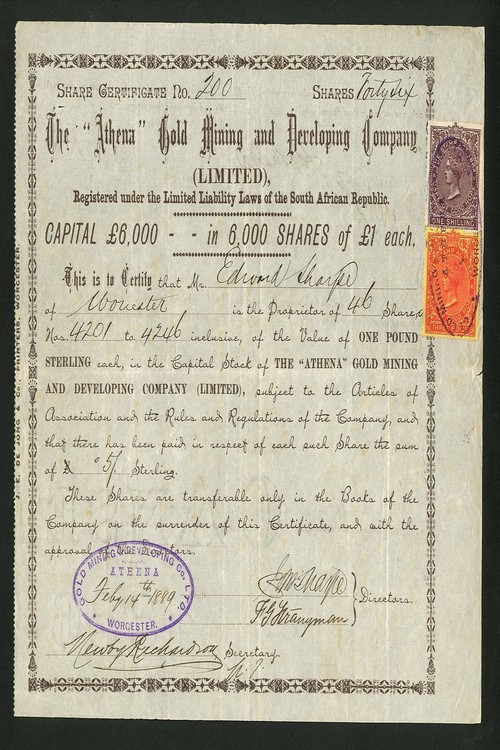 SHARE CERTIFICATE No. 200 SHARES Forty six
The "Athena" Gold Mining and Developing Company
(LIMITED),
Registered under the Limited Liability Laws of the South African Republic.
CAPITAL £6,000 - - in 6,000 SHARES of £1 each.
This is to Certify that Mr. Edward Sharpe
of Worcester is the Proprietor of 46 Shares
Nos. 4201 to 4246 inclusive, of the Value of ONE POUND
STERLING each, in the Capital Stock of THE "ATHENA" GOLD MINING
AND DEVELOPING COMPANY (LIMITED), subject to the Articles of
Association and the Rules and Regulations of the Company, and
that there has been paid in respect of each such Share the sum
of £ " 5/ Sterling.
These Shares are transferable only in the Books of the
Company on the surrender of this Certificate, and with the
approval of the Directors.
GOLD MINING & DEVELOPING Co. LTD.
ATHENA
Feby 14th 1889
WORCESTER.
Directors.
Secretary.
ONE SHILLING
PRINTERS, WORCESTER.